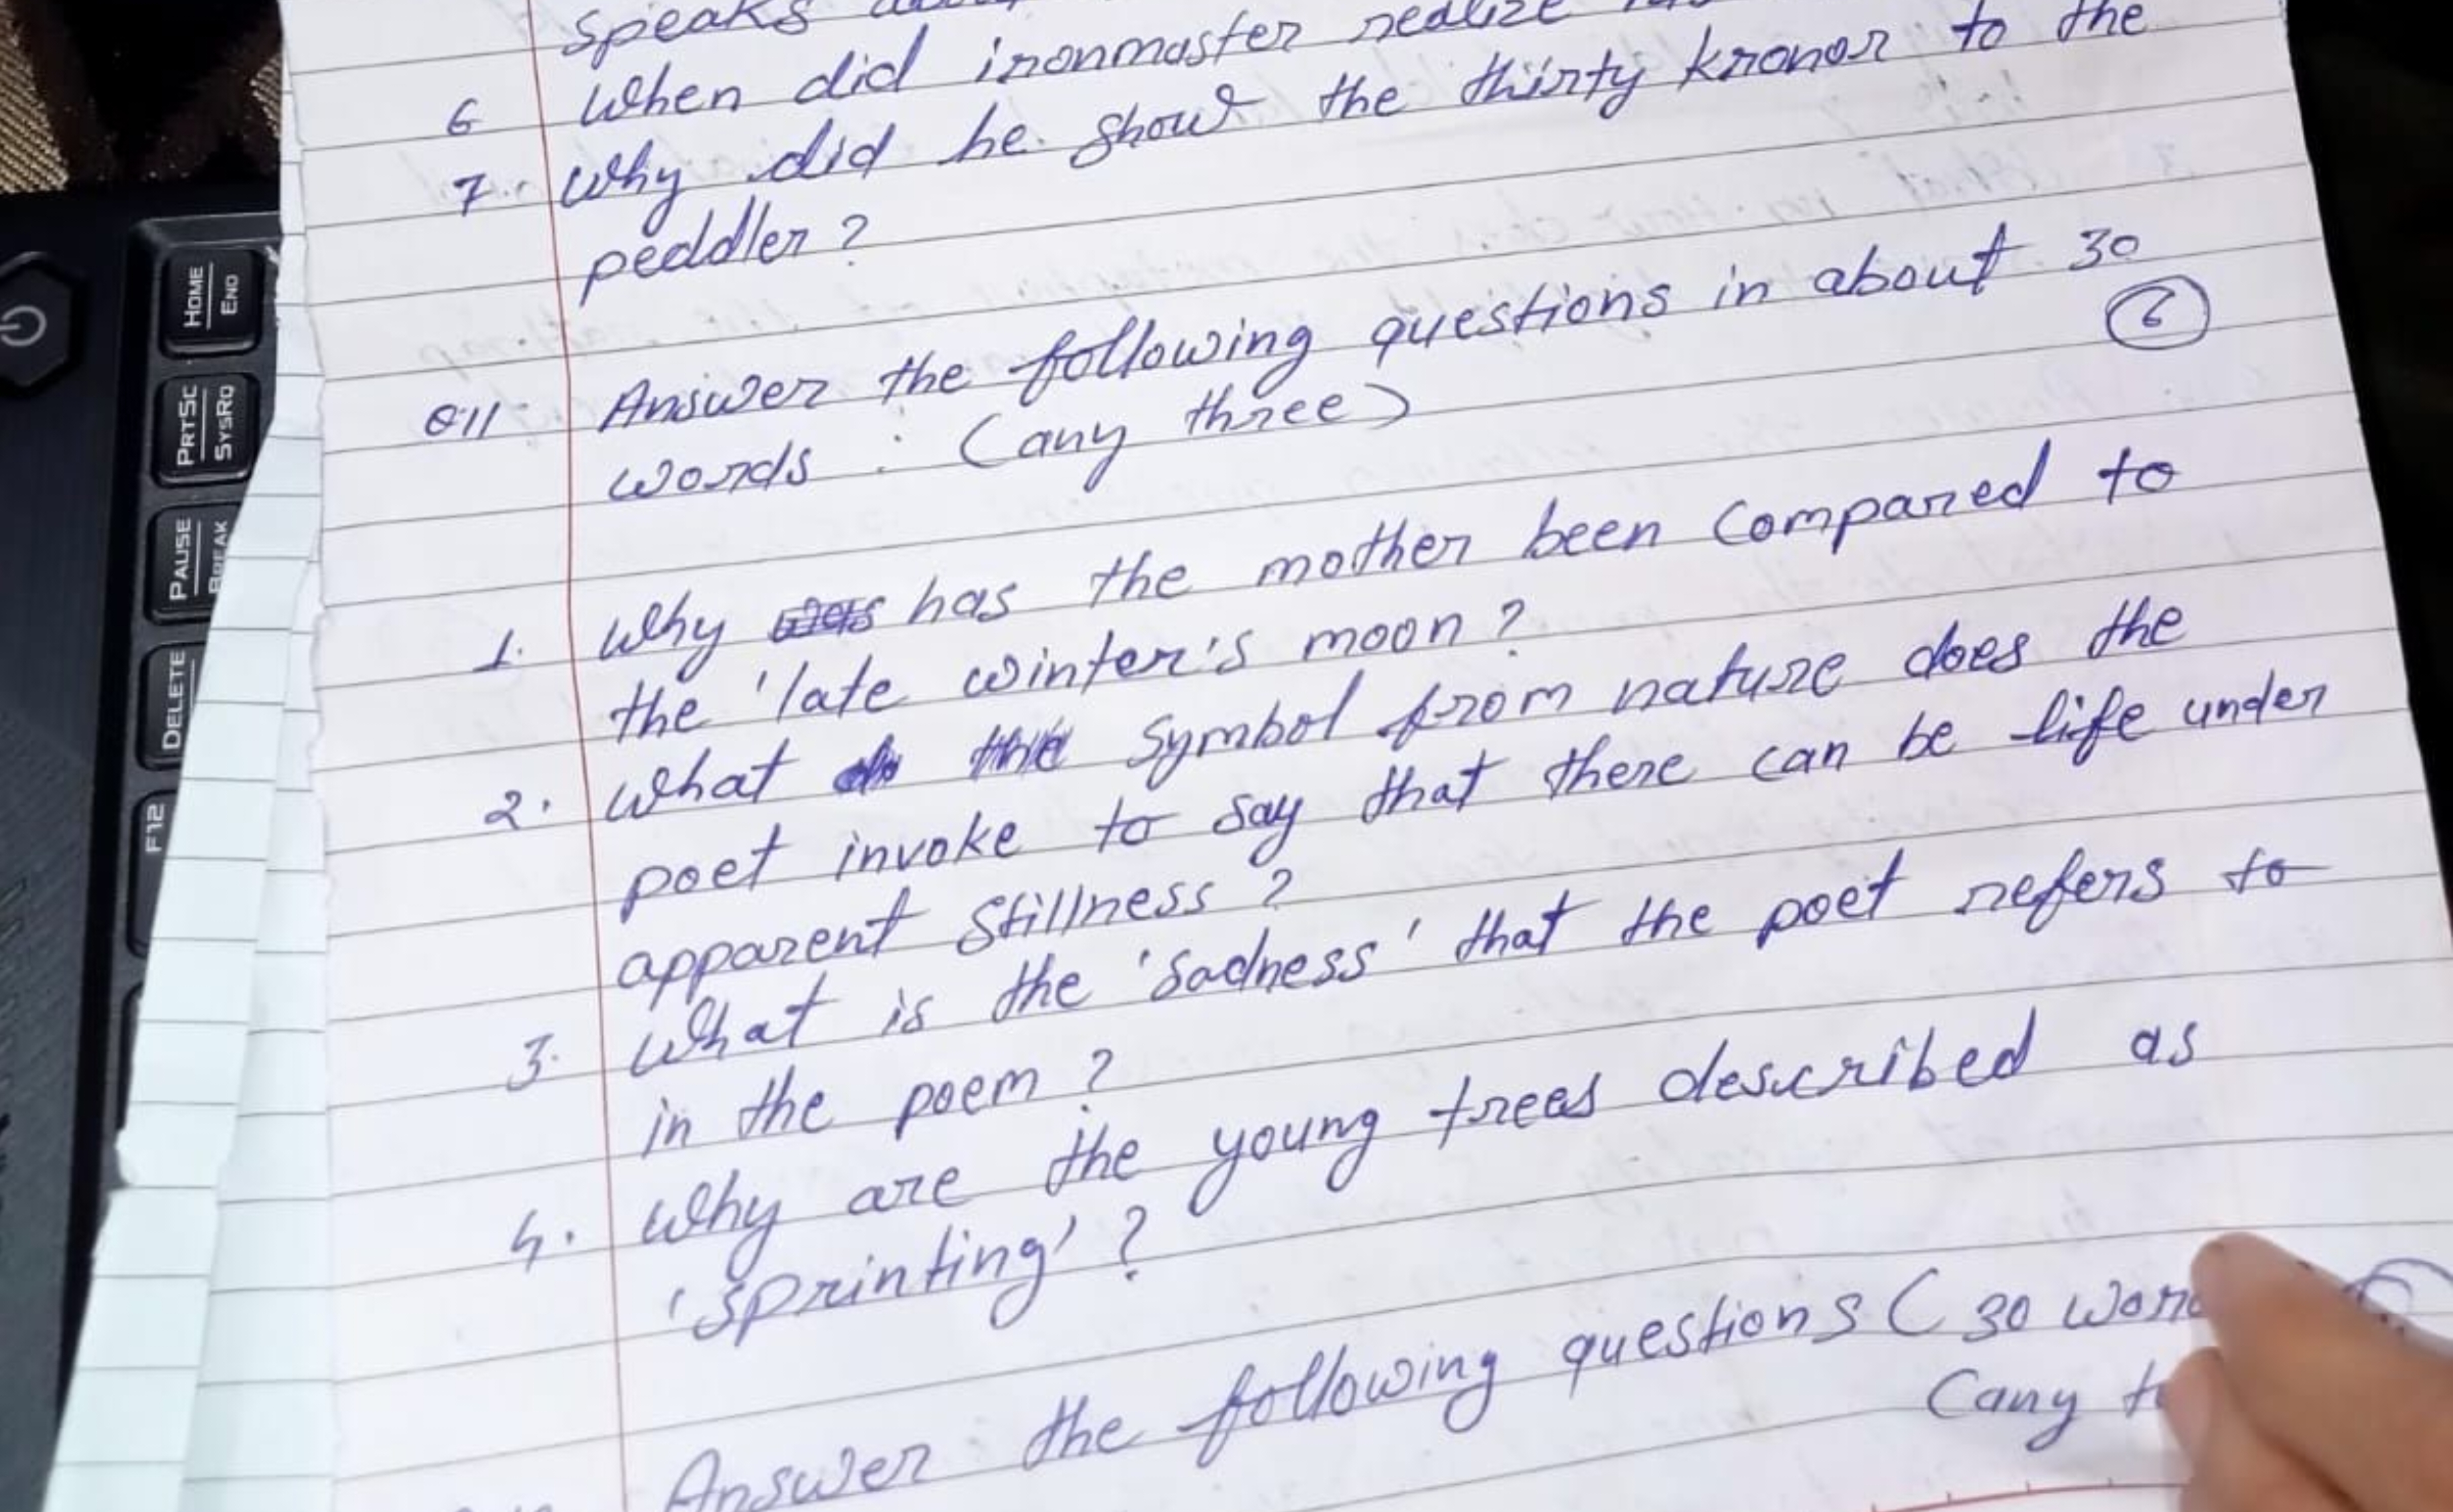 speaks
6 When did ironmaster realize
7. Why did he show the thirty kronor to the
peddler?
Q11 Answer the following questions in about 30
words : (any three)
6
1. Why has the mother been compared to
the 'late winter's moon?
2. What the symbol from nature does the
poet invoke to say that there can be life under
apparent stillness?
3. What is the 'sadness' that the poet refers to
in the poem?
4. Why are the young trees described as
'sprinting'?
Answer the following questions (30
(any
HOME
END
PRTSC
SYSRQ
PAUSE
BREAK
DELETE
F12